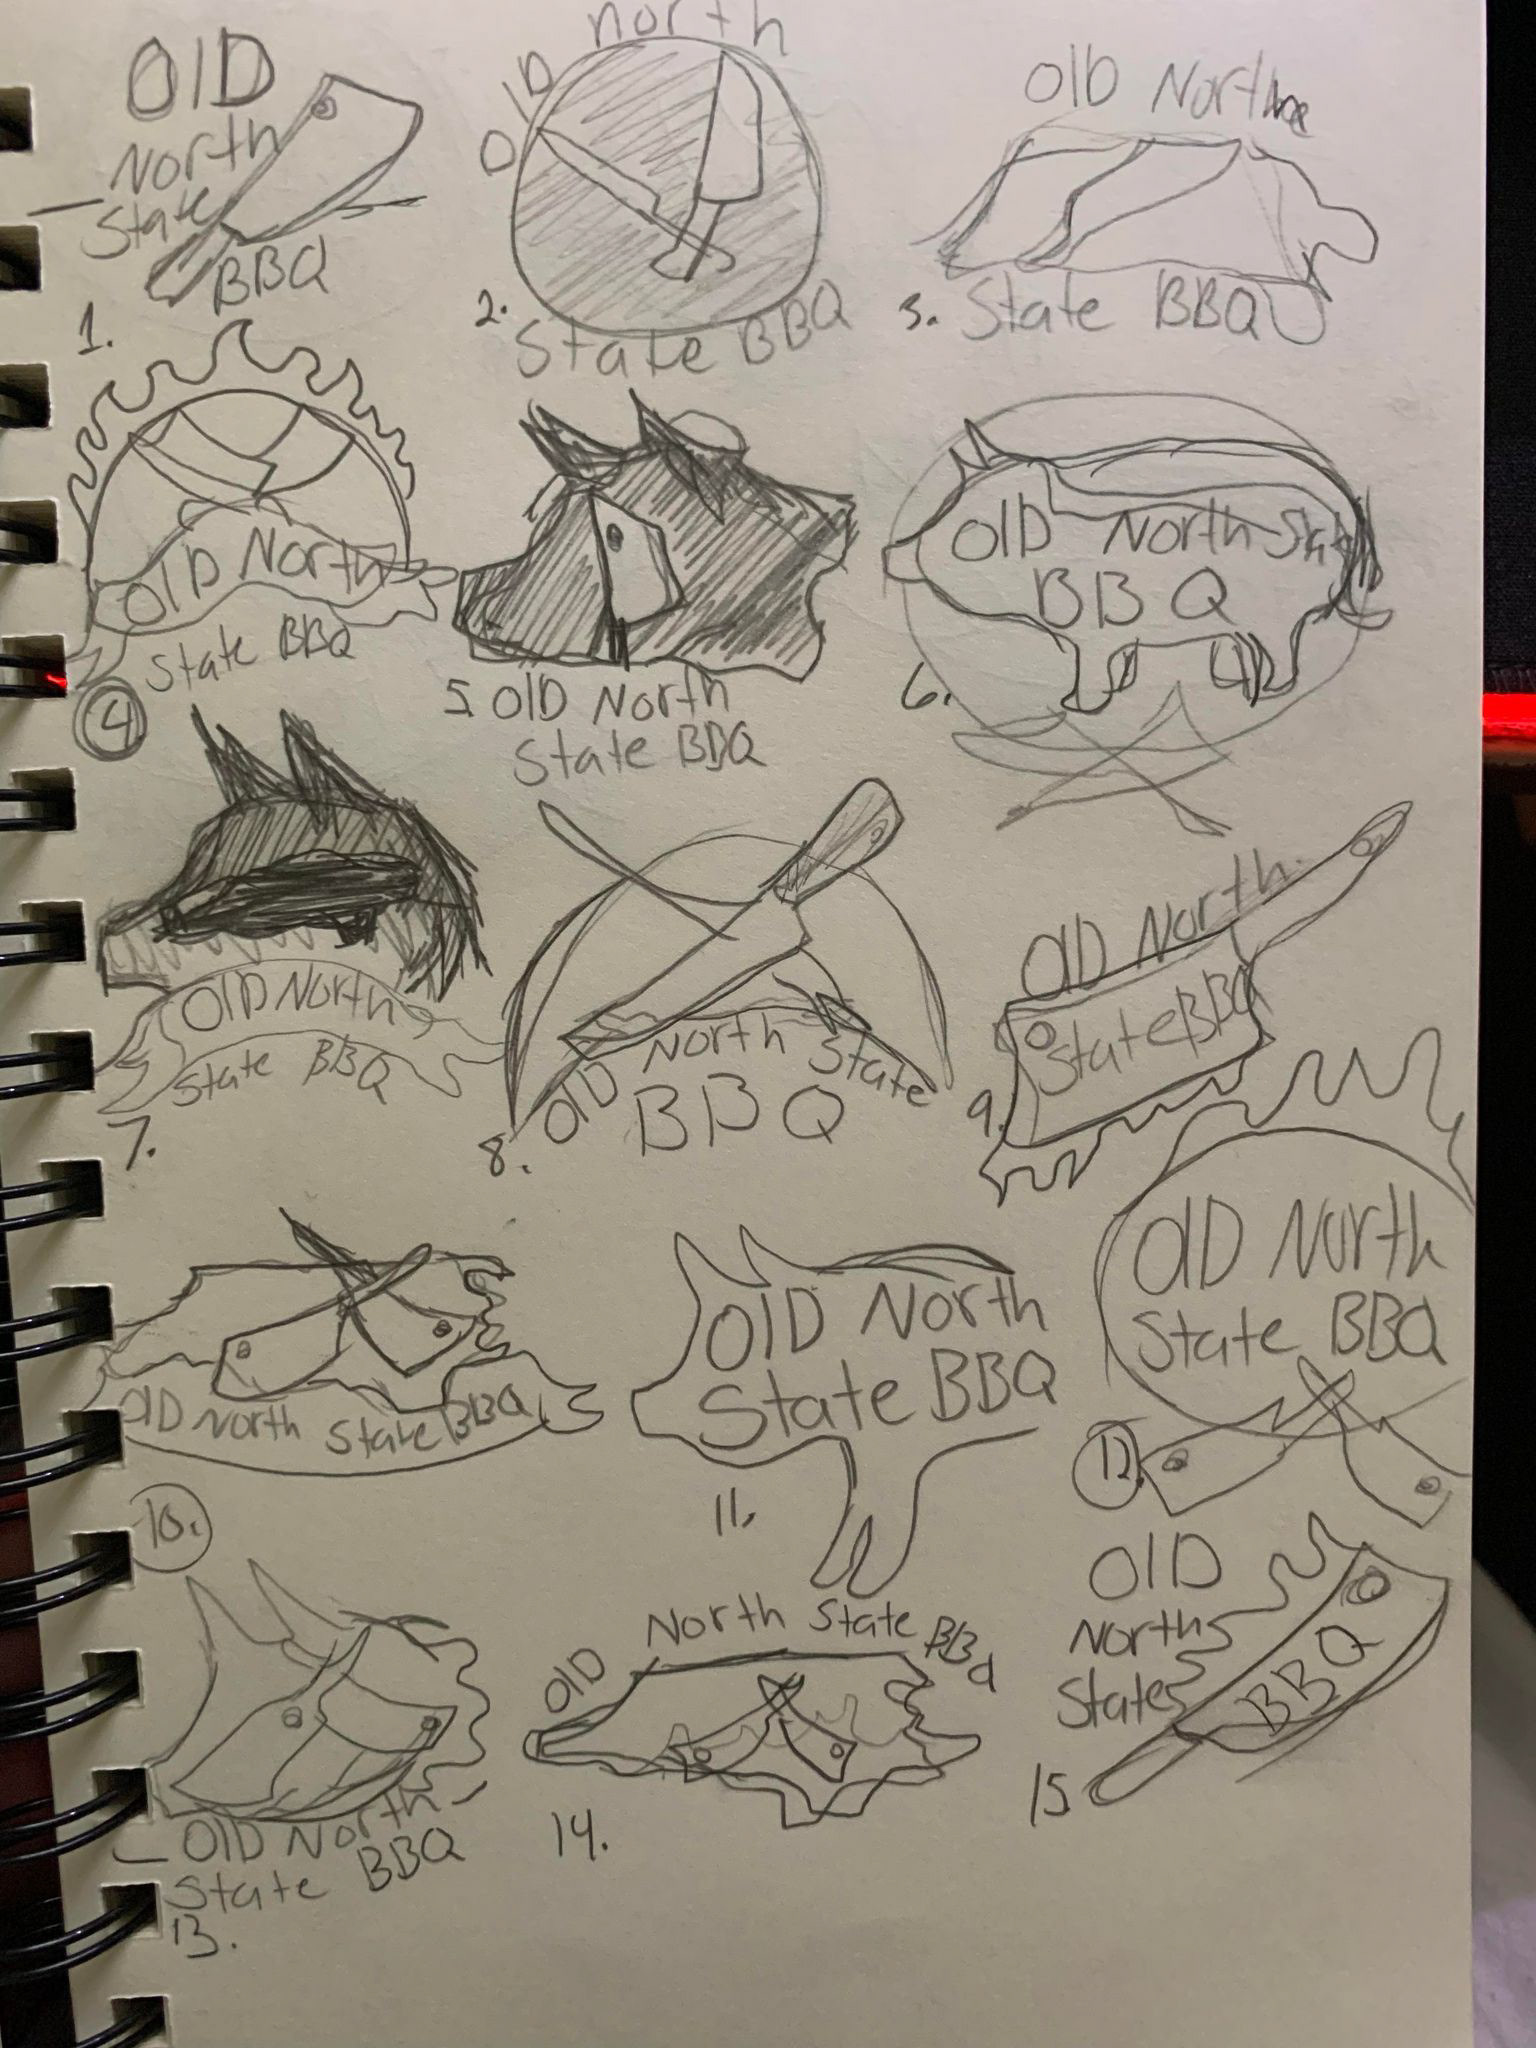 OlD
North
State
BBQ
1.
OlD North
State BBQ
2.
Old North
State BBQ
3.
OlD North
State BBQ
4
5. OlD North
State BBQ
OlD North State
BBQ
6.
OlD North
State BBQ
7.
OlD North State
BBQ
8.
OlD North
State BBQ
9.
OlD North State BBQ
10.
OlD North
State BBQ
11.
OlD North
State BBQ
12.
OlD North
State BBQ
13.
OlD North State BBQ
14.
OlD
North
State
BBQ
15.